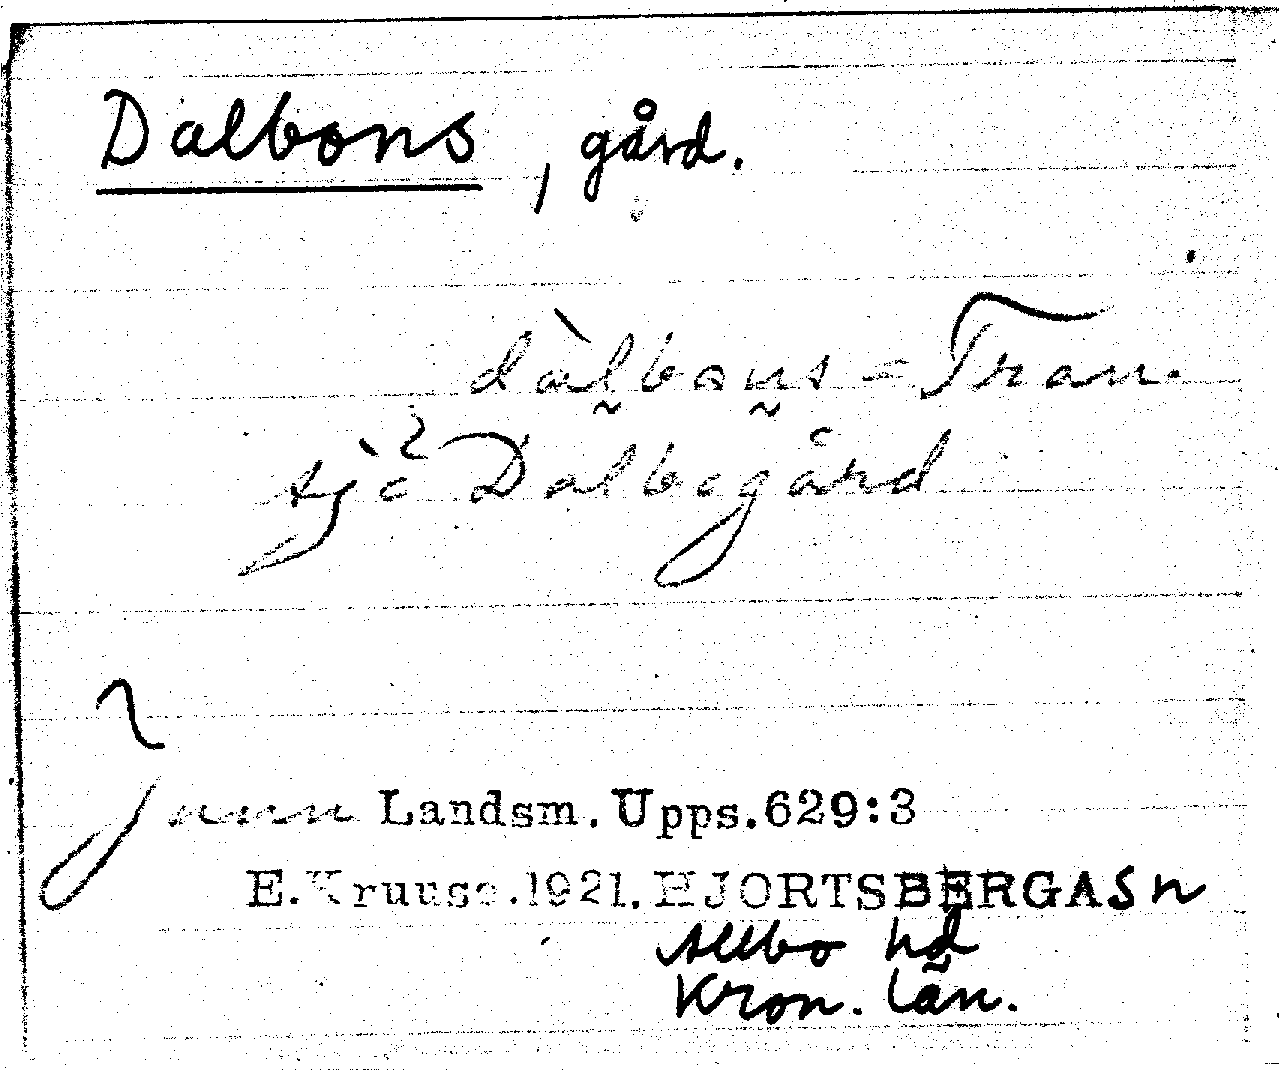 Dalbons, gård.
dàlbons = Tran.
sjö Dalbogård
Landsm. Upps. 629:3
E. Kruuse. 1921. HJORTSBERGA Sn
Allbo hd
Kron. län.